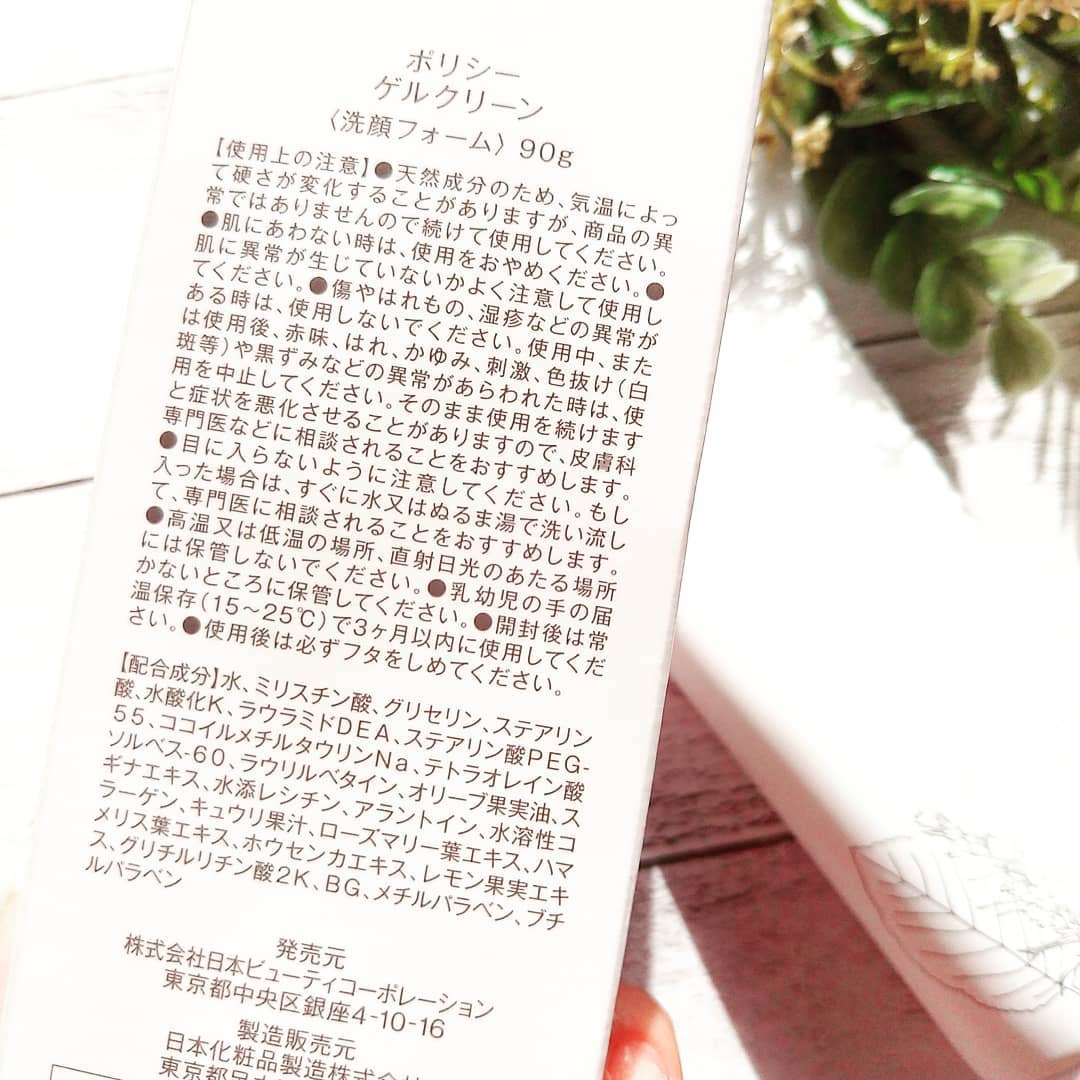 ポリシー
ゲルクリーン
〈洗顔フォーム〉 90g
【使用上の注意】●天然成分のため、気温によっ
て硬さが変化することがありますが、商品の異
常ではありませんので続けて使用してください。
●肌にあわない時は、使用をおやめください。●
肌に異常が生じていないかよく注意して使用し
てください。●傷やはれもの、湿疹などの異常が
ある時は、使用しないでください。使用中、また
は使用後、赤味、はれ、かゆみ、刺激、色抜け(白
斑等)や黒ずみなどの異常があらわれた時は、使
用を中止してください。そのまま使用を続けます
と症状を悪化させることがありますので、皮膚科
専門医などに相談されることをおすすめします。
●目に入らないように注意してください。もし
入った場合は、すぐに水又はぬるま湯で洗い流し
て、専門医に相談されることをおすすめします。
●高温又は低温の場所、直射日光のあたる場所
には保管しないでください。●乳幼児の手の届
かないところに保管してください。●開封後は常
温保存(15〜25℃)で3ヶ月以内に使用してくだ
さい。●使用後は必ずフタをしめてください。
【配合成分】水、ミリスチン酸、グリセリン、ステアリン
酸、水酸化K、ラウラミドDEA、ステアリン酸PEG-
55、ココイルメチルタウリンNa、テトラオレイン酸
ソルベス-60、ラウリルベタイン、オリーブ果実油、ス
ギナエキス、水添レシチン、アラントイン、水溶性コ
ラーゲン、キュウリ果汁、ローズマリー葉エキス、ハマ
メリス葉エキス、ホウセンカエキス、レモン果実エキ
ス、グリチルリチン酸2K、BG、メチルパラベン、ブチ
ルパラベン
発売元
株式会社日本ビューティコーポレーション
東京都中央区銀座4-10-16
製造販売元
日本化粧品製造株式会
東京都